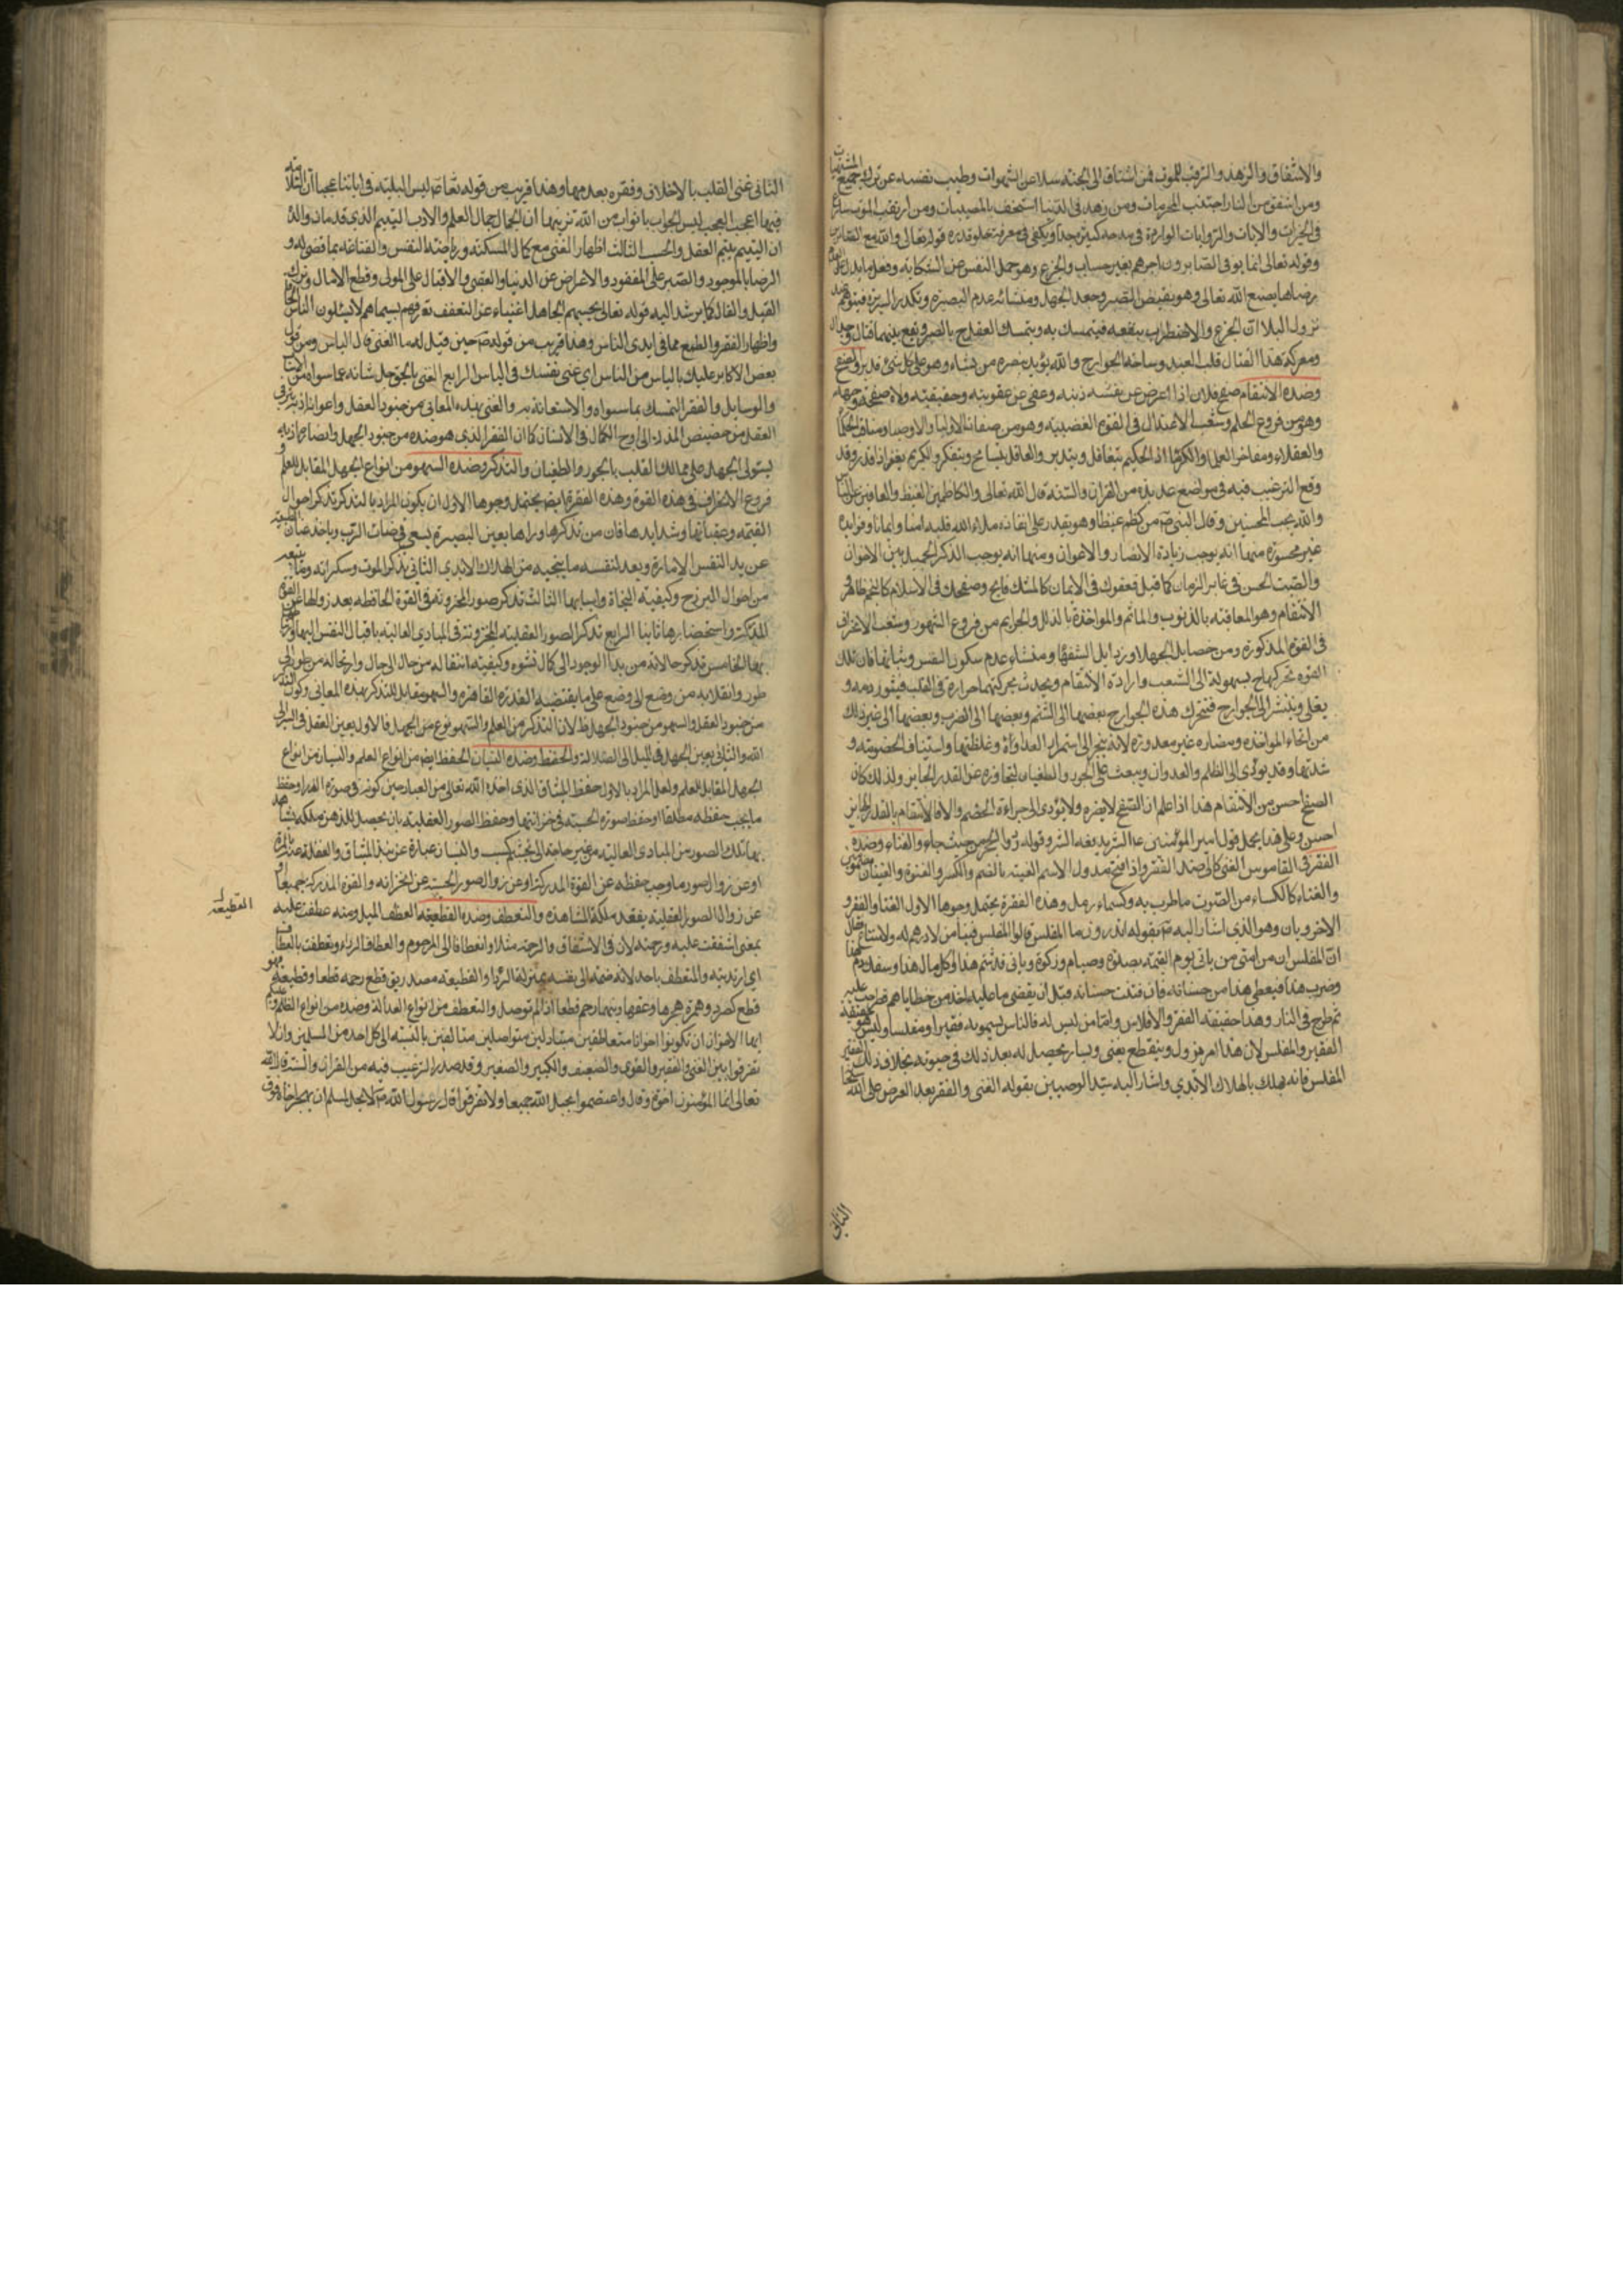 والاشفاق والزهد والترقب للموت فمن اشتاق الى الجنة سلا عن الشهوات وطيب نفسه عن ترك جميع المشتهيات
ومن اشفق من النار اجتنب المحرمات ومن زهد في الدنيا استخف بالمصيبات ومن ارتقب الموت سارع
في الخيرات والايات والروايات الواردة في مدحه كثيرة جدا ويكفي في معرفة علو قدره قوله تعالى والله مع الصابرين
وقوله تعالى انما يوفى الصابرون اجرهم بغير حساب والجزع وهو حمل النفس عن الشكاية وفعل ما يدل على عدم
رضاها بصنع الله تعالى وهو نقيض الصبر وجند الجهل ومنشائه عدم البصيرة وتكدر السريرة فيتوهم عند
نزول البلا ان الجزع والاضطراب ينفعه فيتمسك به ويتمسك العقل بالصبر ويقع بينهما قتال وجدال
ومعركة هذا القتال قلب العبد وساحته الجوارح والله يؤيد بنصره من يشاء وهو على كل شئ قدير والصفح
وضده الانتقام صفح فلان اذا اعرض عن ذنبه وعفى عن عقوبته وحقيقته ولاه صفحة وجهه
وهو من فروع الحلم وشعب الاعتدال في القوة الغضبية وهو من صفات الاوليا والاوصيا ومناقب الحكما
والعقلاء ومفاخر العلما والكرما اذ الحكيم يتغافل ويتدبر والعاقل يسامح ويتفكر والكريم يغفر اذا قدر وقد
وقع الترغيب فيه في مواضع عديدة من القران والسنة قال الله تعالى والكاظمين الغيظ والعافين عن الناس
والله يحب المحسنين وقال النبي ص من كظم غيظا وهو يقدر على انفاذه ملاء الله قلبه امنا وايمانا وفوايده
غير محصورة منها انه يوجب زيادة الانصار والاعوان ومنها انه يوجب الذكر الجميل بين الاخوان
والصيت الحسن في غابر الزمان كما قيل فعفوك في الايمان كالمسك فايح وصفحك في الاسلام كالنجم ظاهر
الانتقام وهو المعاقبة بالذنوب والمآثم والمواخذة بالذلل والجرايم من فروع التهور وشعب الانحراف
في القوة المذكورة ومن خصايل الجهلا ورذايل السفهاء ومنشاءه عدم سكون النفس وثباتها فان تلك
القوة تحركها بسهولة الى الشغب وارادة الانتقام ويحدث بحركتها حرارة في القلب فيثور دمه و
يغلى وينتشر الى الجوارح فتتحرك هذه الجوارح بعضها الى الشتم وبعضها الى الضرب وبعضها الى غير ذلك
من انحاء المواخذة ومضاره غير معدودة لانه ينجر الى استمرار العداوة وغلظتها واستيناف الخصومة و
شدتها وقد يؤدي الى الظلم والعدوان ويبعث على الجور والطغيان لتجاوزه عن القدر الجايز ولذلك كان
الصفح احسن من الانتقام هذا اذا علم ان الصفح لا يضره ولا يؤدي الى جراءة الخصم والا فالانتقام بالقدر الجايز
احسن وعلى هذا يحمل قول امير المؤمنين ع الشر يدفعه الشر وقوله رد الحجر من حيث جاء والغناء وضده
الفقر في القاموس الغنى كالى ضد الفقر واذا فتح مد والاسم الغنية بالضم والكسر والغنوة والغنيان مضمومتين
والغناء كالكساء من الصوت ما طرب به وكسماء رمل وهذه الفقرة يحتمل وجوها الاول الغنا والفقر
الاخرويان وهو الذي اشار اليه ص بقوله اتدرون ما المفلس قالوا المفلس فينا من لا درهم له ولا متاع فقال
ان المفلس من امتي من ياتي يوم القيمة بصلوة وصيام وزكوة وياتي قد شتم هذا واكل مال هذا وسفك دم هذا
وضرب هذا فيعطى هذا من حسناته فان فنيت حسناته قبل ان يقضى ما عليه اخذ من خطاياهم فطرحت عليه
ثم طرح في النار وهذا حقيقة الفقر والافلاس واما من ليس له فالناس يسمونه فقيرا ومفلسا وليس هو حقيقة
الفقير والمفلس لان هذا امر يزول وينقطع بغنى ويسار يحصل له بعد ذلك في حيوته بخلاف ذلك الفقير
المفلس فانه يهلك بالهلاك الابدي واشار اليه سيد الوصيين بقوله الغنى والفقر بعد العرض على الله
الثاني
الثاني غنى القلب بالاخلاق وفقره بعدمها وهذا قريب من قوله
فيها اعجب العجب ليس الجواب ان الجمال جمال العلم والادب اليتيم الذي قد مات والده
ان اليتيم يتيم العقل والحسب الثالث اظهار الغنى مع كمال المسكنة ورياضة النفس والقناعة بما قضى له و
الرضا بالموجود والصبر على المفقود والاعراض عن الدنيا والعقبى والاقبال على المولى وقطع الامال وترك
القيل والقال كما يرشد اليه قوله تعالى يحسبهم الجاهل اغنياء من التعفف تعرفهم بسيماهم لا يسئلون الناس الحافا
واظهار الفقر والطمع مما في ايدي الناس وهذا قريب من قوله ص حين قيل له ما الغنى قال الياس ومن قول
بعض الاكابر عليك بالياس من الناس اي غنى نفسك في الياس الرابع الغنى بالحق جل شانه عما سواه من الاسباب
والوسايل والفقر التمسك بما سواه والاستعانة به والغنى بهذه المعاني من جنود العقل واعوانه اذ به يترقى
العقل من حضيض المذلة الى اوج الكمال في الانسان كما ان الفقر الذي هو ضده من جنود الجهل وانصاره اذ به
يستولى الجهل على ممالك القلب بالجور والطغيان والتذكر وضده السهو من انواع الجهل المقابل للعلم
فروع الانحراف في هذه القوة وهذه الفقرة ايضا يحتمل وجوها الاول ان يكون المراد بالتذكر تذكر احوال
القيمة وعقباتها وشدايدها فان من تذكرها وراها بعين البصيرة يسعى في مرضات الرب وياخذ عنان الطبيعة
عن يد النفس الامارة ويعد لنفسه ما ينجيه من الهلاك الابدي الثاني تذكر الموت وسكراته وما يتبعه
من احوال البرزخ وكيفية النجاة واسبابها الثالث تذكر صور المخزونة في القوة الحافظة بعد زوالها عن القوة
المدركة واستحضارها ثانيا الرابع تذكر الصور العقلية المخزونة في المبادي العالية باقبال النفس اليها
الخامس تذكر حالاته من بدأ الوجود الى كمال نشوه وكيفية انتقاله من حال الى حال وارتحاله من طور الى
طور وانقلابه من وضع الى وضع على ما يقتضيه القدرة القاهرة والسهو مقابل للتذكر بهذه المعاني وكون التذكر
من جنود العقل والسهو من جنود الجهل ظ لان التذكر من العلم والسهو نوع من الجهل فالاول يعين العقل في السير الى
الله والثاني يعين الجهل في الميل الى الضلالة والحفظ وضده النسيان الحفظ ايضا من انواع العلم والنسيان من انواع
الجهل المقابل للعلم ولعل المراد بالاول حفظ الميثاق الذي اخذه الله تعالى من العباد حين كونهم في صورة الذر او حفظ
ما يجب حفظه مطلقا او حفظ صورة الحسية في خزانتها وحفظ الصور العقلية بان يحصل للذهن ملكة
بها تلك الصور من المبادي العالية من غير حاجة الى تجشم كسب والنسيان عبارة عن نبذ الميثاق والغفلة عنه بالمرة
او عن زوال صور ما وجب حفظه عن القوة المدركة او عن زوال صور الحسية عن الخزانة والقوة المدركة جميعا او
عن زوال الصور العقلية بفقد ملكة المشاهدة والتعطف وضده القطيعة العطف الميل ومنه عطفت عليه
القطيعة
بمعنى اشفقت عليه ورحمته لان في الاشفاق والرحمة مثلا وانعطافا الى المرحوم والعطاف الرداء وتعطفت بالعطاف
اي ارتديته والمتعطف باحد لانه ضمه الى نفسه بمنزلة الرداء والقطيعة مصدر يق قطع رحمه قطعا وقطيعة فهو
قطع كصرد وهمزة هجرها وعقها وبينهما رحم قطعا اذا لم توصل والتعطف من انواع العدالة وضده من انواع الظلم
ايها الاخوان ان تكونوا اخوانا متعاطفين متباذلين متواصلين متالفين بالنسبة الى كل احد من المسلمين وان لا
تفرقوا بين الغنى والفقير والقوي والضعيف والكبير والصغير وقد صدر الترغيب فيه من القران والسنة قال الله
تعالى انما المؤمنون اخوة وقال واعتصموا بحبل الله جميعا ولا تفرقوا قال رسول الله ص لا يحل لمسلم ان يهجر اخاه فوق